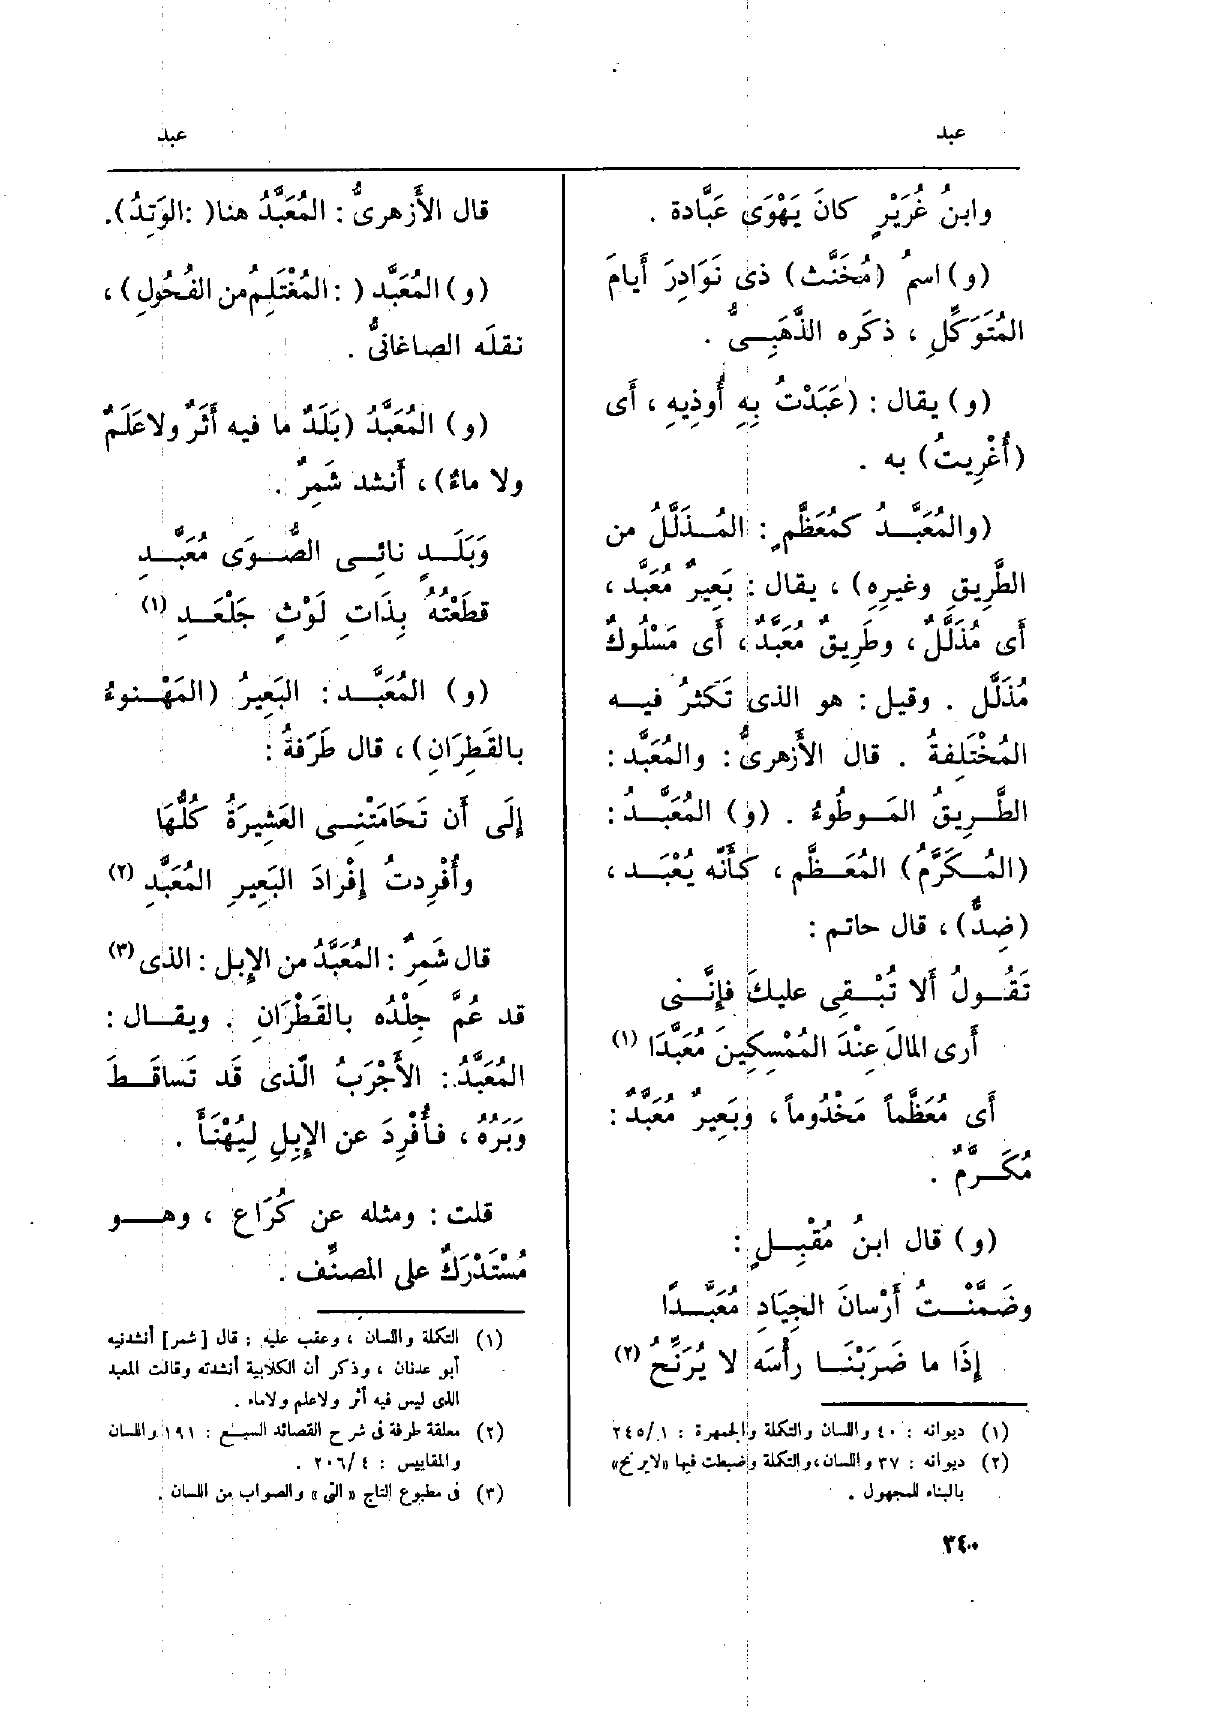 عبد
عبد
وابنُ غُرَيْرٍ كانَ يَهْوَى عَبَّادة .
(و) اسمُ (مُخَنَّث) ذى نَوَادِرَ أَيامَ
المُتَوَكِّلِ ، ذكَره الذَّهَبِىُّ .
(و) يقال : (عَبَدْتُ بِهِ أُوذِيهِ ، أَى
(أُغْرِيتُ) به .
(والمُعَبَّدُ كمُعَظَّمٍ : المُذَلَّلُ من
الطَّرِيقِ وغيرِهِ) ، يقال : بَعِيرٌ مُعَبَّد ،
أَى مُذَلَّلٌ ، وطَرِيقٌ مُعَبَّدٌ ، أَى مَسْلُوكٌ
مُذَلَّل . وقيل : هو الذى تَكثُرُ فيه
المُخْتَلِفةُ . قال الأَزهرىُّ : والمُعَبَّد :
الطَّرِيقُ المَوطُوءُ . (و) المُعَبَّدُ :
(المُكَرَّمُ) المُعَظَّم ، كأَنَّه يُعْبَد ،
(ضِدٌّ) ، قال حاتم :
تَقُولُ أَلا تُبْقِى عليكَ فإِنَّنى
أَرى المالَ عِنْدَ المُمْسِكِينَ مُعَبَّدَا (١)
أَى مُعَظَّماً مَخْدُوماً ، وبَعِيرٌ مُعَبَّدٌ :
مُكَرَّمٌ .
(و) قال ابنُ مُقْبِلٍ :
وضَمَّنْتُ أَرْسانَ الجِيَادِ مُعَبَّدًا
إِذَا ما ضَرَبْنَا رأْسَه لا يُرَنِّحُ (٢)
(١) ديوانه : ٤٠ واللسان والتكلة والجمهرة : ٢٤٥/١
(٢) ديوانه : ٣٧ واللسان ، والتكلة وضبطت فيها «لايرنح»
بالبناء للمجهول .
قال الأَزهرىُّ : المُعَبَّدُ هنا( :الوَتِدُ).
(و) المُعَبَّد ( :المُغْتَلِمُ من الفُحُولِ) ،
نقلَه الصاغانىُّ .
(و) المُعَبَّدُ (بَلَدٌ ما فيه أَثَرٌ ولاعَلَمٌ
ولا ماءٌ) ، أَنشد شَمِرٌ .
وَبَلَدٍ نائِى الصُّوَى مُعَبَّدِ
قطَعْتُهُ بِذَاتِ لَوْثٍ جَلْعَدِ (١)
(و) المُعَبَّد : البَعِيرُ (المَهْنوءُ
بالقَطِرَانِ) ، قال طَرَفةُ :
إِلَى أَن تَحَامَتْنِى العَشِيرَةُ كُلُّهَا
وأُفْرِدتُ إِفْرادَ البَعِيرِ المُعَبَّدِ (٢)
قال شَمِرٌ : المُعَبَّدُ من الإِبل : الذى (٣)
قد عُمَّ جِلْدُه بالقَطْرَانِ . ويقال :
المُعَبَّدُ : الأَجْرَبُ الَّذى قَد تَساقَطَ
وَبَرُهُ ، فأُفْرِدَ عن الإِبِلِ لِيُهْنَأَ .
قلت : ومثله عن كُرَاع ، وهو
مُسْتَدْرَكٌ على المصنِّف .
(١) التكلة واللسان ، وعقب عليه : قال [ شمر] أنشدنيه
أبو عدنان ، وذكر أن الكلابية أنشدته وقالت المعبد
الذى ليس فيه أثر ولاعلم ولاماء .
(٢) معلقة طرفة فى شرح القصائد السبع : ١٩١ واللسان
والمقاييس : ٢٠٦/٤ .
(٣) فى مطبوع التاج « التى » والصواب من اللسان .
٣٤٠